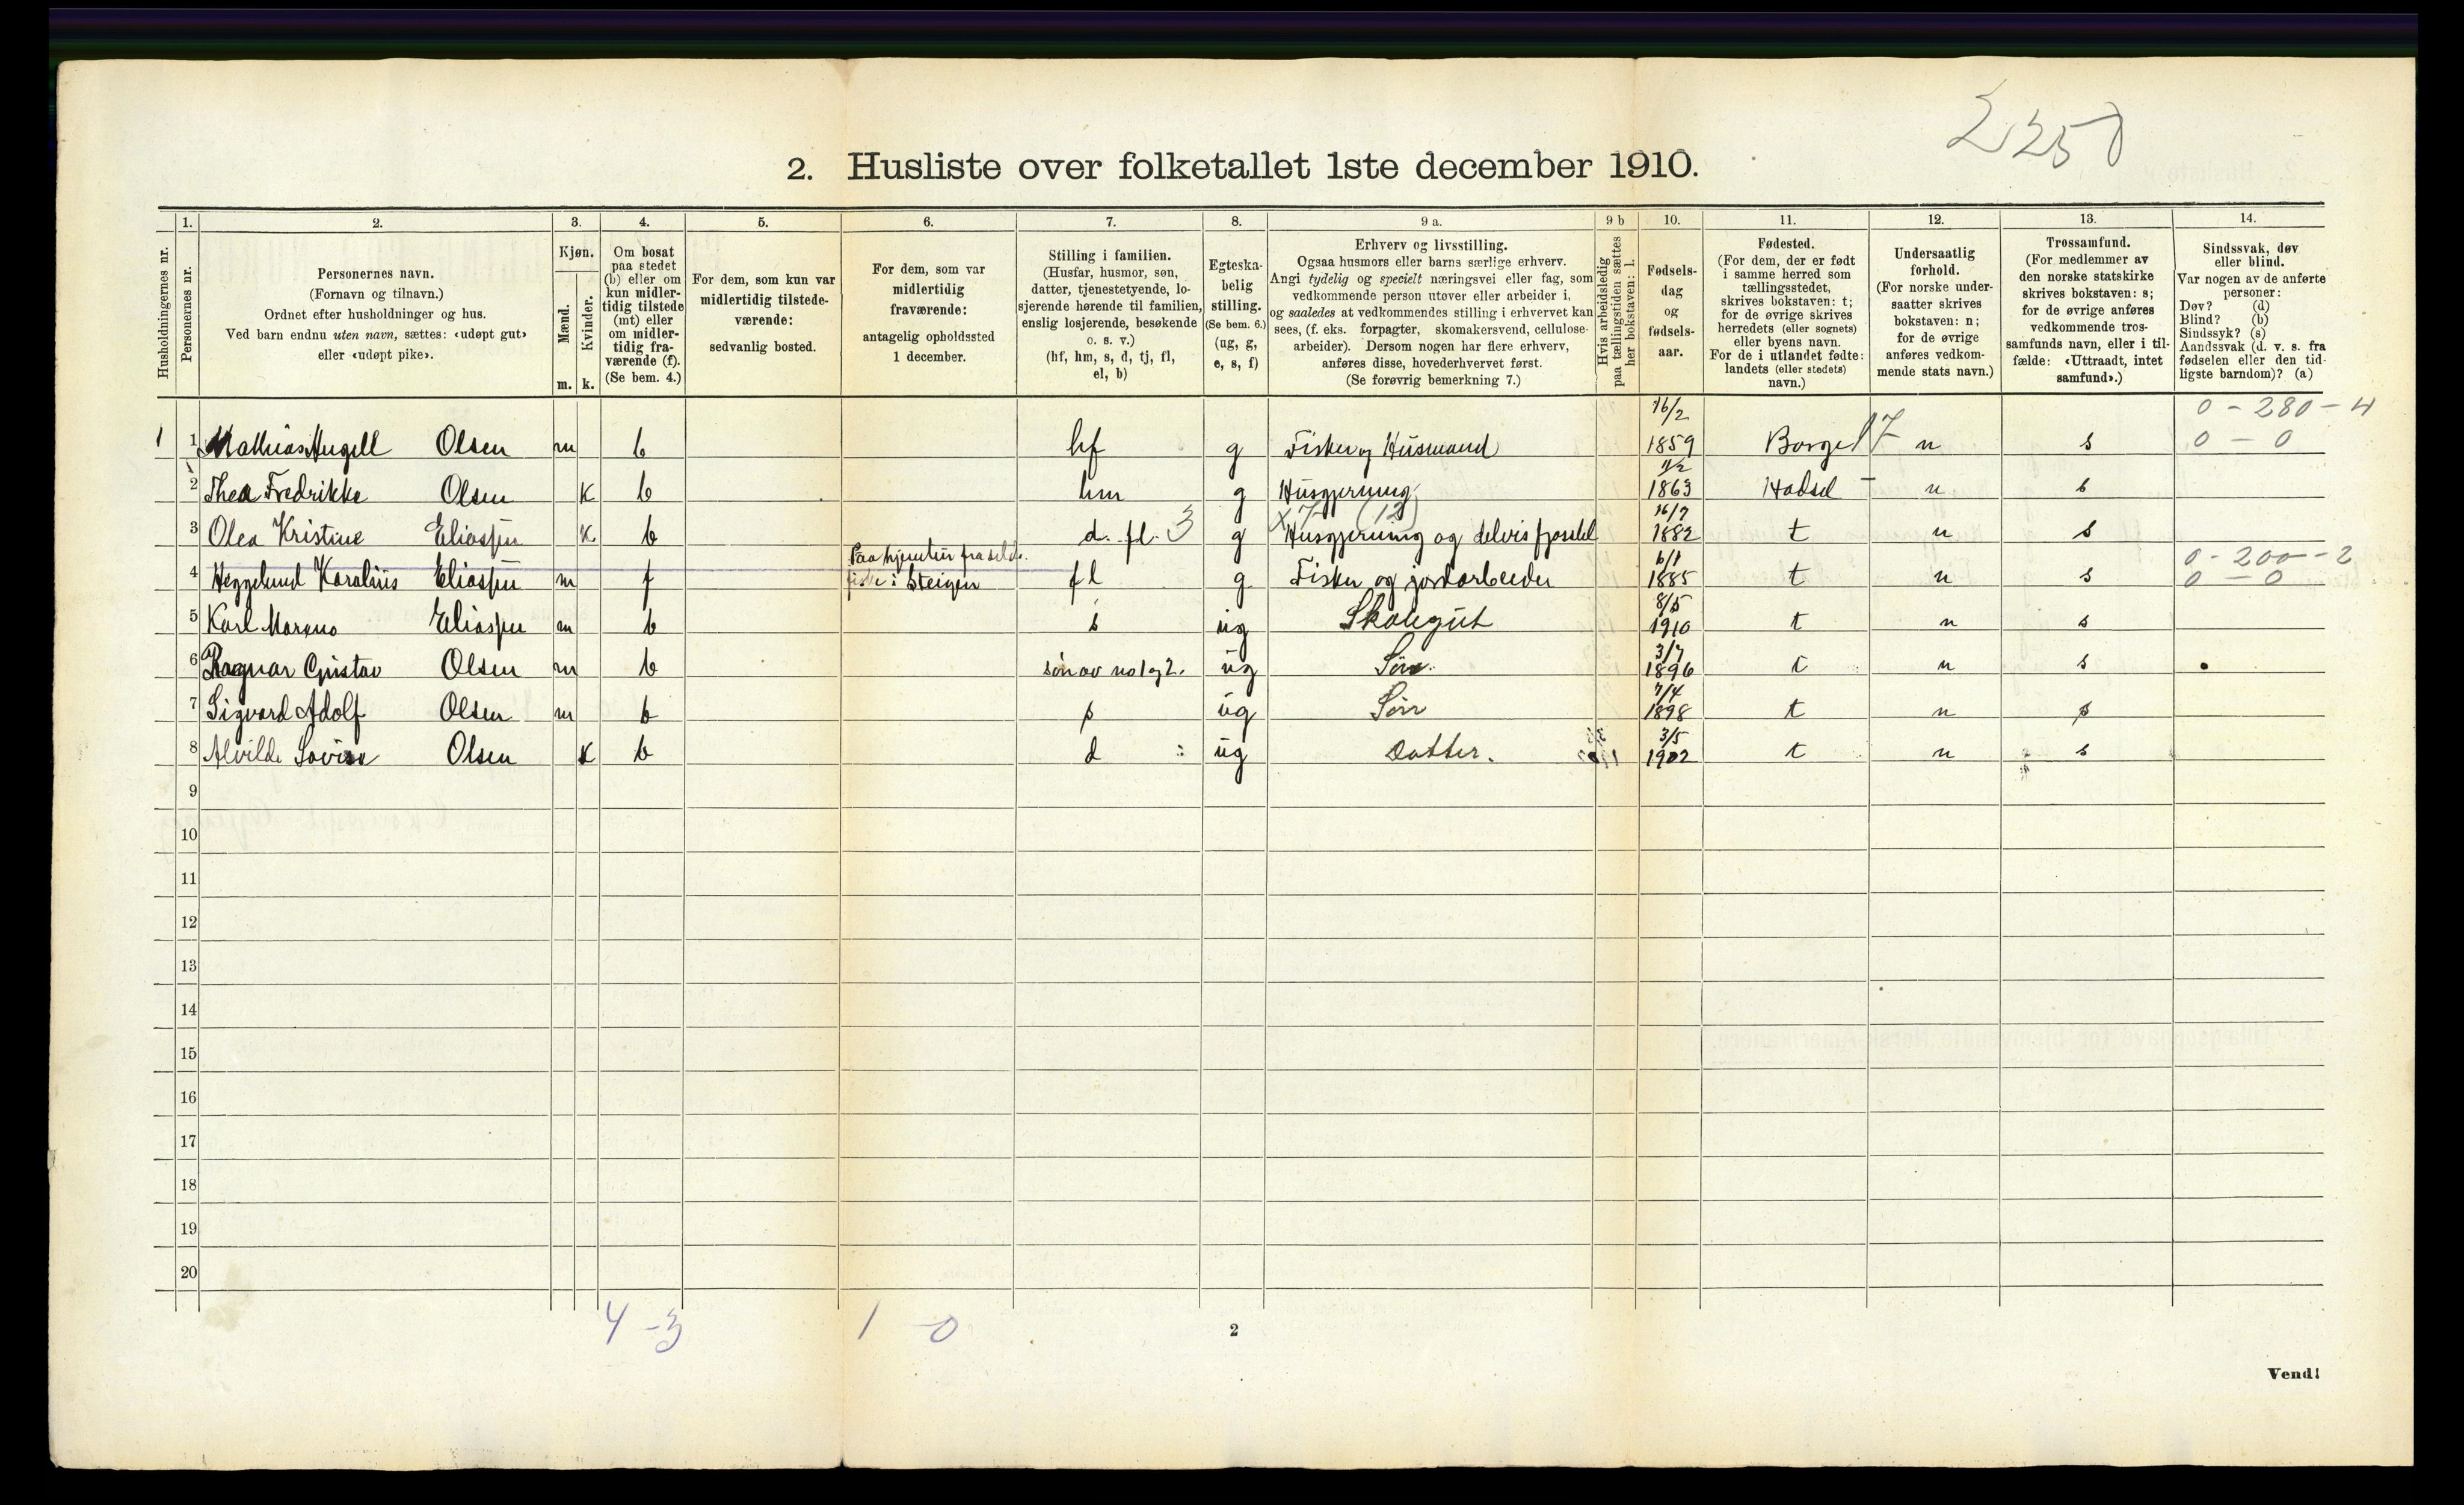 2250
2. Husliste over folketallet 1ste december 1910.
1. 2. 3. 4. 5. 6. 7. 8. 9 a. 9 b 10. 11. 12. 13. 14.
Husholdningernes nr.
Personernes nr.
Personernes navn.
(Fornavn og tilnavn.)
Ordnet efter husholdninger og hus.
Ved barn endnu uten navn, sættes: «udøpt gut»
eller «udøpt pike».
Kjøn.
Mænd.
Kvinder.
m. k.
Om bosat
paa stedet
(b) eller om
kun midler-
tidig tilstede
(mt) eller
om midler-
tidig fra-
værende (f).
(Se bem. 4.)
For dem, som kun var
midlertidig tilstede-
værende:
sedvanlig bosted.
For dem, som var
midlertidig
fraværende:
antagelig opholdssted
1 december.
Stilling i familien.
(Husfar, husmor, søn,
datter, tjenestetyende, lo-
sjerende hørende til familien,
enslig losjerende, besøkende
o. s. v.)
(hf, hm, s, d, tj, fl,
el, b)
Egteska-
belig
stilling.
(Se bem. 6.)
(ug, g,
e, s, f)
Erhverv og livsstilling.
Ogsaa husmors eller barns særlige erhverv.
Angi tydelig og specielt næringsvei eller fag, som
vedkommende person utøver eller arbeider i,
og saaledes at vedkommendes stilling i erhvervet kan
sees, (f. eks. forpagter, skomakersvend, cellulose-
arbeider). Dersom nogen har flere erhverv,
anføres disse, hovederhvervet først.
(Se forøvrig bemerkning 7.)
Hvis arbeidsledig
paa tællingstiden sættes
her bokstaven: l.
Fødsels-
dag
og
fødsels-
aar.
Fødested.
(For dem, der er født
i samme herred som
tællingsstedet,
skrives bokstaven: t;
for de øvrige skrives
herredets (eller sognets)
eller byens navn.
For de i utlandet fødte:
landets (eller stedets)
navn.)
Undersaatlig
forhold.
(For norske under-
saatter skrives
bokstaven: n;
for de øvrige
anføres vedkom-
mende stats navn.)
Trossamfund.
(For medlemmer av
den norske statskirke
skrives bokstaven: s;
for de øvrige anføres
vedkommende tros-
samfunds navn, eller i til-
fælde: «Uttraadt, intet
samfund».)
Sindssvak, døv
eller blind.
Var nogen av de anførte
personer:
Døv? (d)
Blind? (b)
Sindssyk? (s)
Aandssvak (d. v. s. fra
fødselen eller den tid-
ligste barndom)? (a)
16/2 0 - 280 - 4
1 1 Mathias Angell Olsen m b hf g Fisker og Husmand 1859 Borge 7 n s 0 - 0
2 Thea Fredrikke Olsen K b hm g Husgjerning 1863 Hadsel - n s
16/7
3 Olea Kristine Eliassen K b d. fl. 3 g Husgjerning og delvis fjosstel 1882 t n s
6/1 0 - 200 - 2
4 Heggelund Karalius Eliassen m f i Steigen fl g Fisker og jordarbeider 1885 t n s 0 - 0
8/5
5 Karl Marcus Eliassen m b s ug Skolegut 1910 t n s
3/7
6 Ragnar Gustav Olsen m b søn av no 1 og 2. ug Søn. 1896 t n s
7/4
7 Sigvard Adolf Olsen m b s ug Søn 1898 t n s
3/5
8 Alvilde Lovise Olsen K b d ug Datter. 1902 t n s
9
10
11
12
13
14
15
16
17
18
19
20
4 - 3 1 - 0
2
Vend!